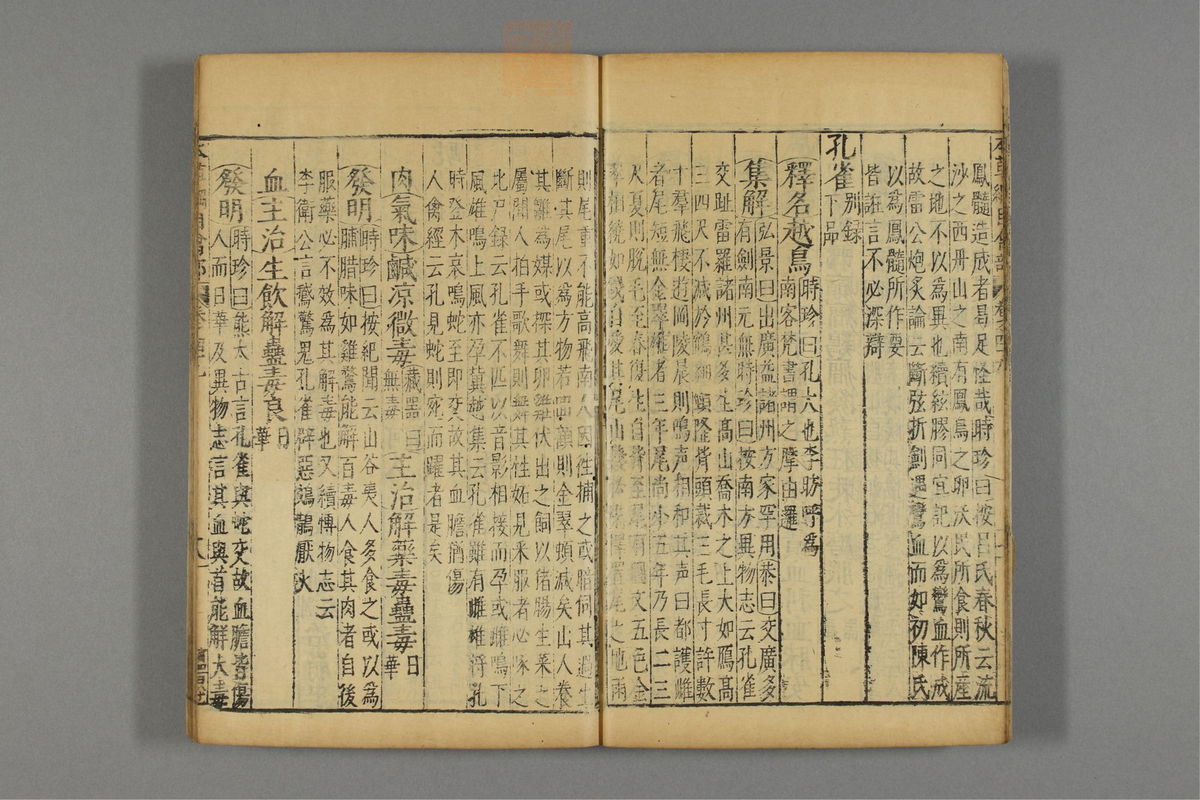 鳳髓造成者曷足怪哉時珍曰按呂氏春秋云流
沙之西丹山之南有鳳鳥之卵沃民所食則所産
之地不以為異也續絃膠洞冥記以為鸞血作成
故雷公炮炙論云斷弦折劍遇鸞血而如初陳氏
以為鳳髓所作要
皆誑言不必深辯
孔雀別録下品
釋名越鳥時珍曰孔大也李昉呼為
南客梵書謂之摩由邏
集解弘景曰出廣益諸州方家罕用恭曰交廣多
有劍南元無時珍曰按南方異物志云孔雀
交趾雷羅諸州甚多生高山喬木之上大如鴈高
三四尺不減於鶴細頸隆背頭戴三毛長寸許數
十羣飛棲遊岡陵晨則鳴声相和其声曰都護雌
者尾短無金翠雄者三年尾尚小五年乃長二三
尺夏則脫毛至春復生自背至尾有圓文五色金
翠相繞如錢自愛其尾山棲必擇置尾之地雨
則尾重不能高飛南人因徃捕之或暗伺其過生
斷其尾以為方物若囘顧則金翠頓減矣山人養
其雛為媒或探其卵雞伏出之飼以猪腸生菜之
屬聞人拍手歌舞則舞其性妬見采服者必啄之
北户録云孔雀不匹以音影相接而孕或雌鳴下
風雄鳴上風亦孕冀越集云孔雀雖有雌雄将乳
時登木哀鳴蛇至即交故其血膽猶傷
人禽經云孔見蛇則宛而躍者是矣
肉氣味鹹凉微毒藏器曰無毒主治解藥毒蠱毒日華
發明時珍曰按紀聞云山谷夷人多食之或以為
脯腊味如雞鶩能解百毒人食其肉者自後
服藥必不效為其解毒也又續愽物志云
李衛公言鵞驚鬼孔雀辟惡鵁鶄厭火
血主治生飲解蠱毒良日華
發明時珍曰熊太古言孔雀與蛇交故血膽皆傷
人而日華及異物志言其血與首能解大毒